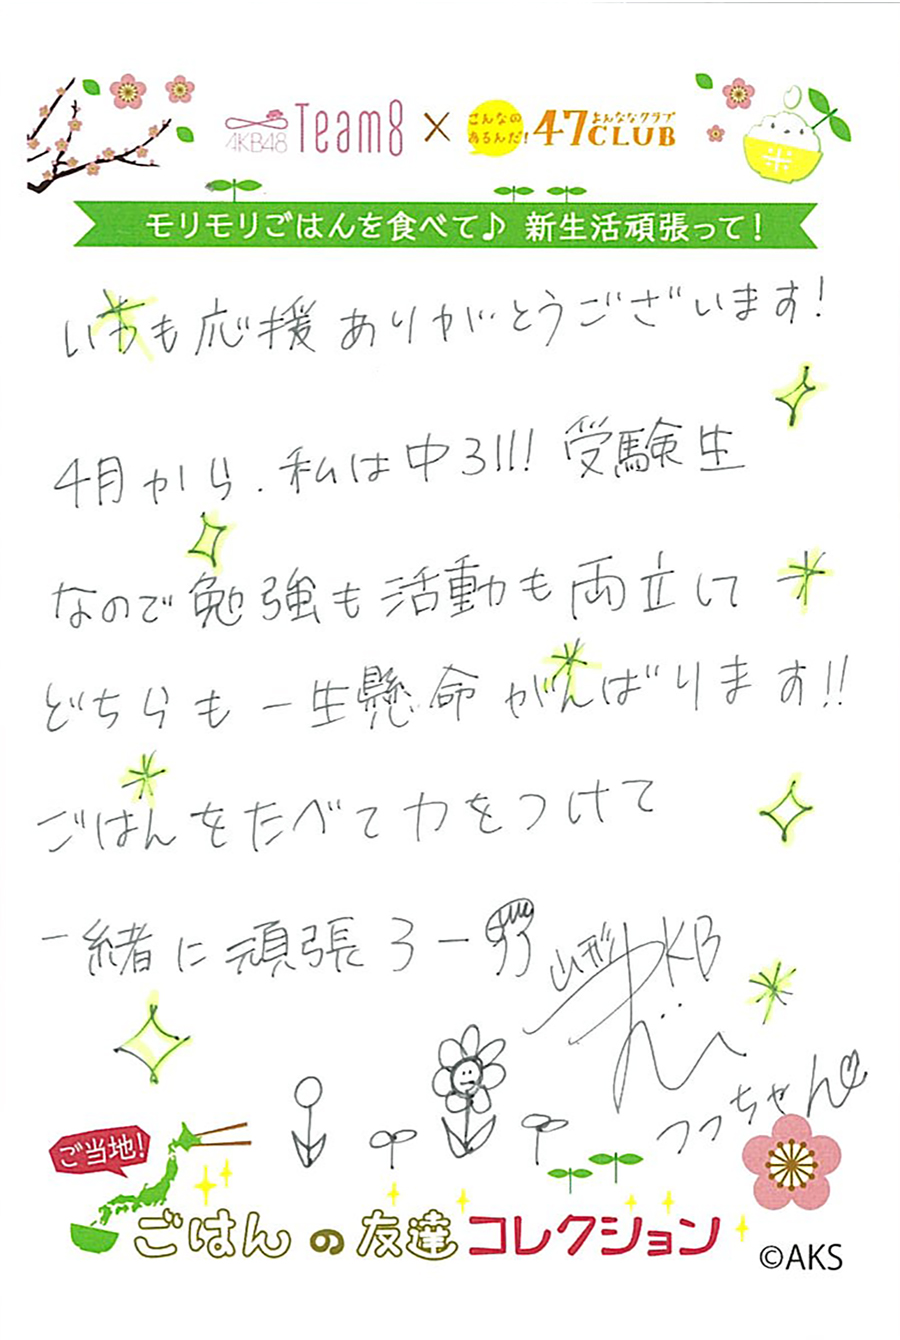 AKB48 Team8 × こんなの あるんだ! 47CLUB よんななクラブ
米
モリモリごはんを食べて♪ 新生活頑張って!
いつも応援ありがとうございます!
4月から、私は中3!!! 受験生
なので勉強も活動も両立して
どちらも一生懸命がんばります!!
ごはんをたべて力をつけて
一緒に頑張ろー
山形 AKB
つつちゃん♡
ご当地!
ごはんの友達コレクション
©AKS